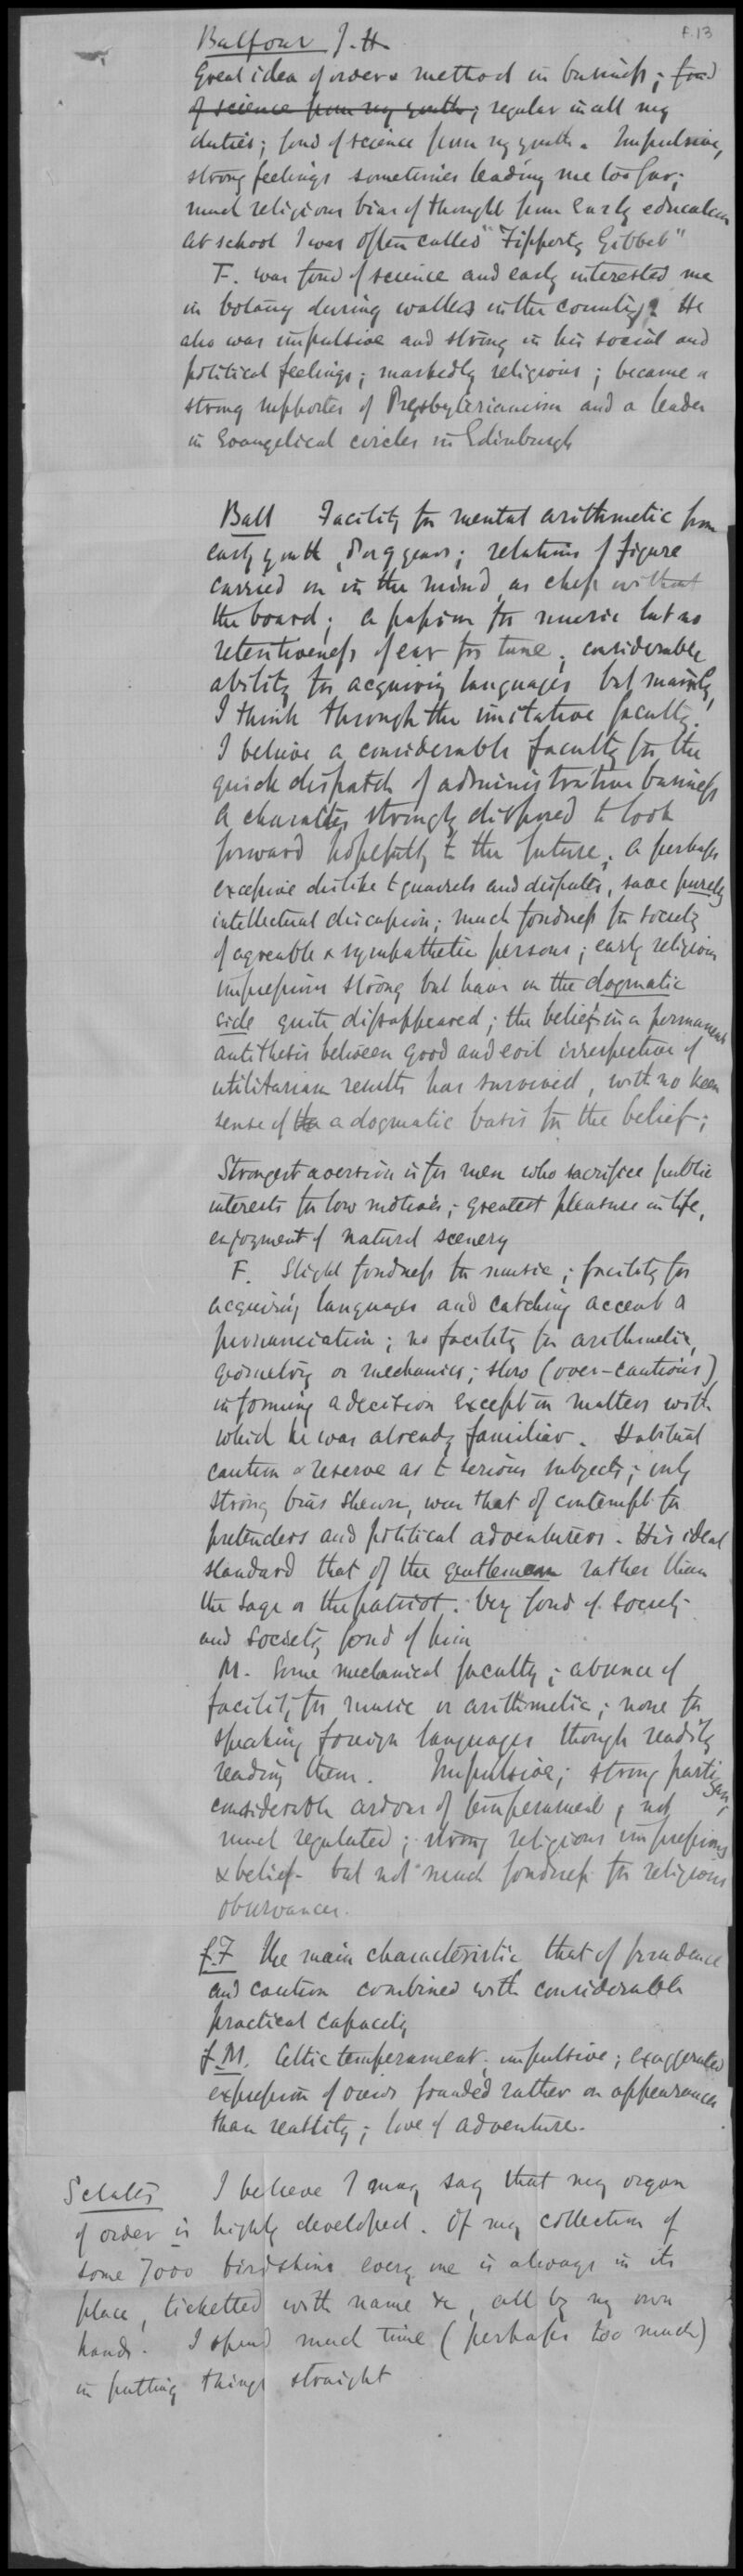 F. 13
Balfour J. H.
Great idea of order & method in business; fond
of science from my youth; regular in all my
duties; fond of science from my youth. Impulsive,
strong feelings sometimes leading me too far;
much religious bias of thought from early education
At school I was often called "Fipperty Gibbet"
F. was fond of science and early interested me
in botany during walks in the country. He
also was impulsive and strong in his social and
political feelings; markedly religious; became a
strong supporter of Presbyterianism and a leader
in Evangelical circles in Edinburgh
Ball Facility for mental arithmetic from
early youth, 8 or 9 years; relations of figure
carried on in the mind as chess without
the board; a passion for music but no
retentiveness of ear for tune; considerable
ability for acquiring languages but mainly,
I think through the imitative faculty.
I believe a considerable faculty for the
quick dispatch of administrative business
A character strongly disposed to look
forward hopefully to the future; a perhaps
excessive dislike to quarrels and disputes, save purely
intellectual discussion; much fondness for society
of agreable & sympathetic persons; early religious
impressions strong but have on the dogmatic
side quite dissappeared; the belief in a permanent
antithesis between good and evil irrespective of
utilitarian results has survived, with no keen
sense of the a dogmatic basis for the belief;
Strongest aversion is for men who sacrifice public
interests for low motives; greatest pleasure in life,
enjoyment of natural scenery
F. Slight fondness for music; facility for
acquiring languages and catching accent &
pronunciation; no facility for arithmetic,
geometry or mechanics; slow (over-cautious)
in forming a decision except in matters with
which he was already familiar. Habitual
caution & reserve as to serious subjects; only
strong bias shewn, was that of contempt for
pretenders and political adventurers. His ideal
standard that of the gentleman rather than
the sage or the patriot. Very fond of society
and society fond of him
M. Some mechanical faculty; absence of
facility for music or arithmetic; none for
speaking foreign languages though readily
reading them. Impulsive; strong partizan,
considerable ardour of temperament, not
much regulated; strong religious impressions
& belief - but not much fondness for religious
observances.
f.F The main characteristic that of prudence
and caution combined with considerable
practical capacity
f.M. Celtic temperament; impulsive; exaggerated
expression of views founded rather on appearances
than reality; love of adventure.
Sclater I believe I may say that my organ
of order is highly developed. Of my collection of
some 7000 birdskins every one is always in its
place, ticketted with name &c, all by my own
hands. I spend much time (perhaps too much)
in putting things straight